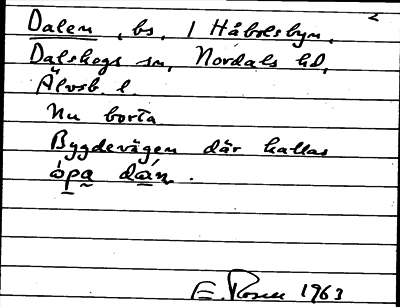 Dalen, bs. / Håbolsbyn,
Dalskogs sn, Nordals hd,
Älvsb. l.
Nu borta
Bygdevägen där kallas
E. Rosen 1963